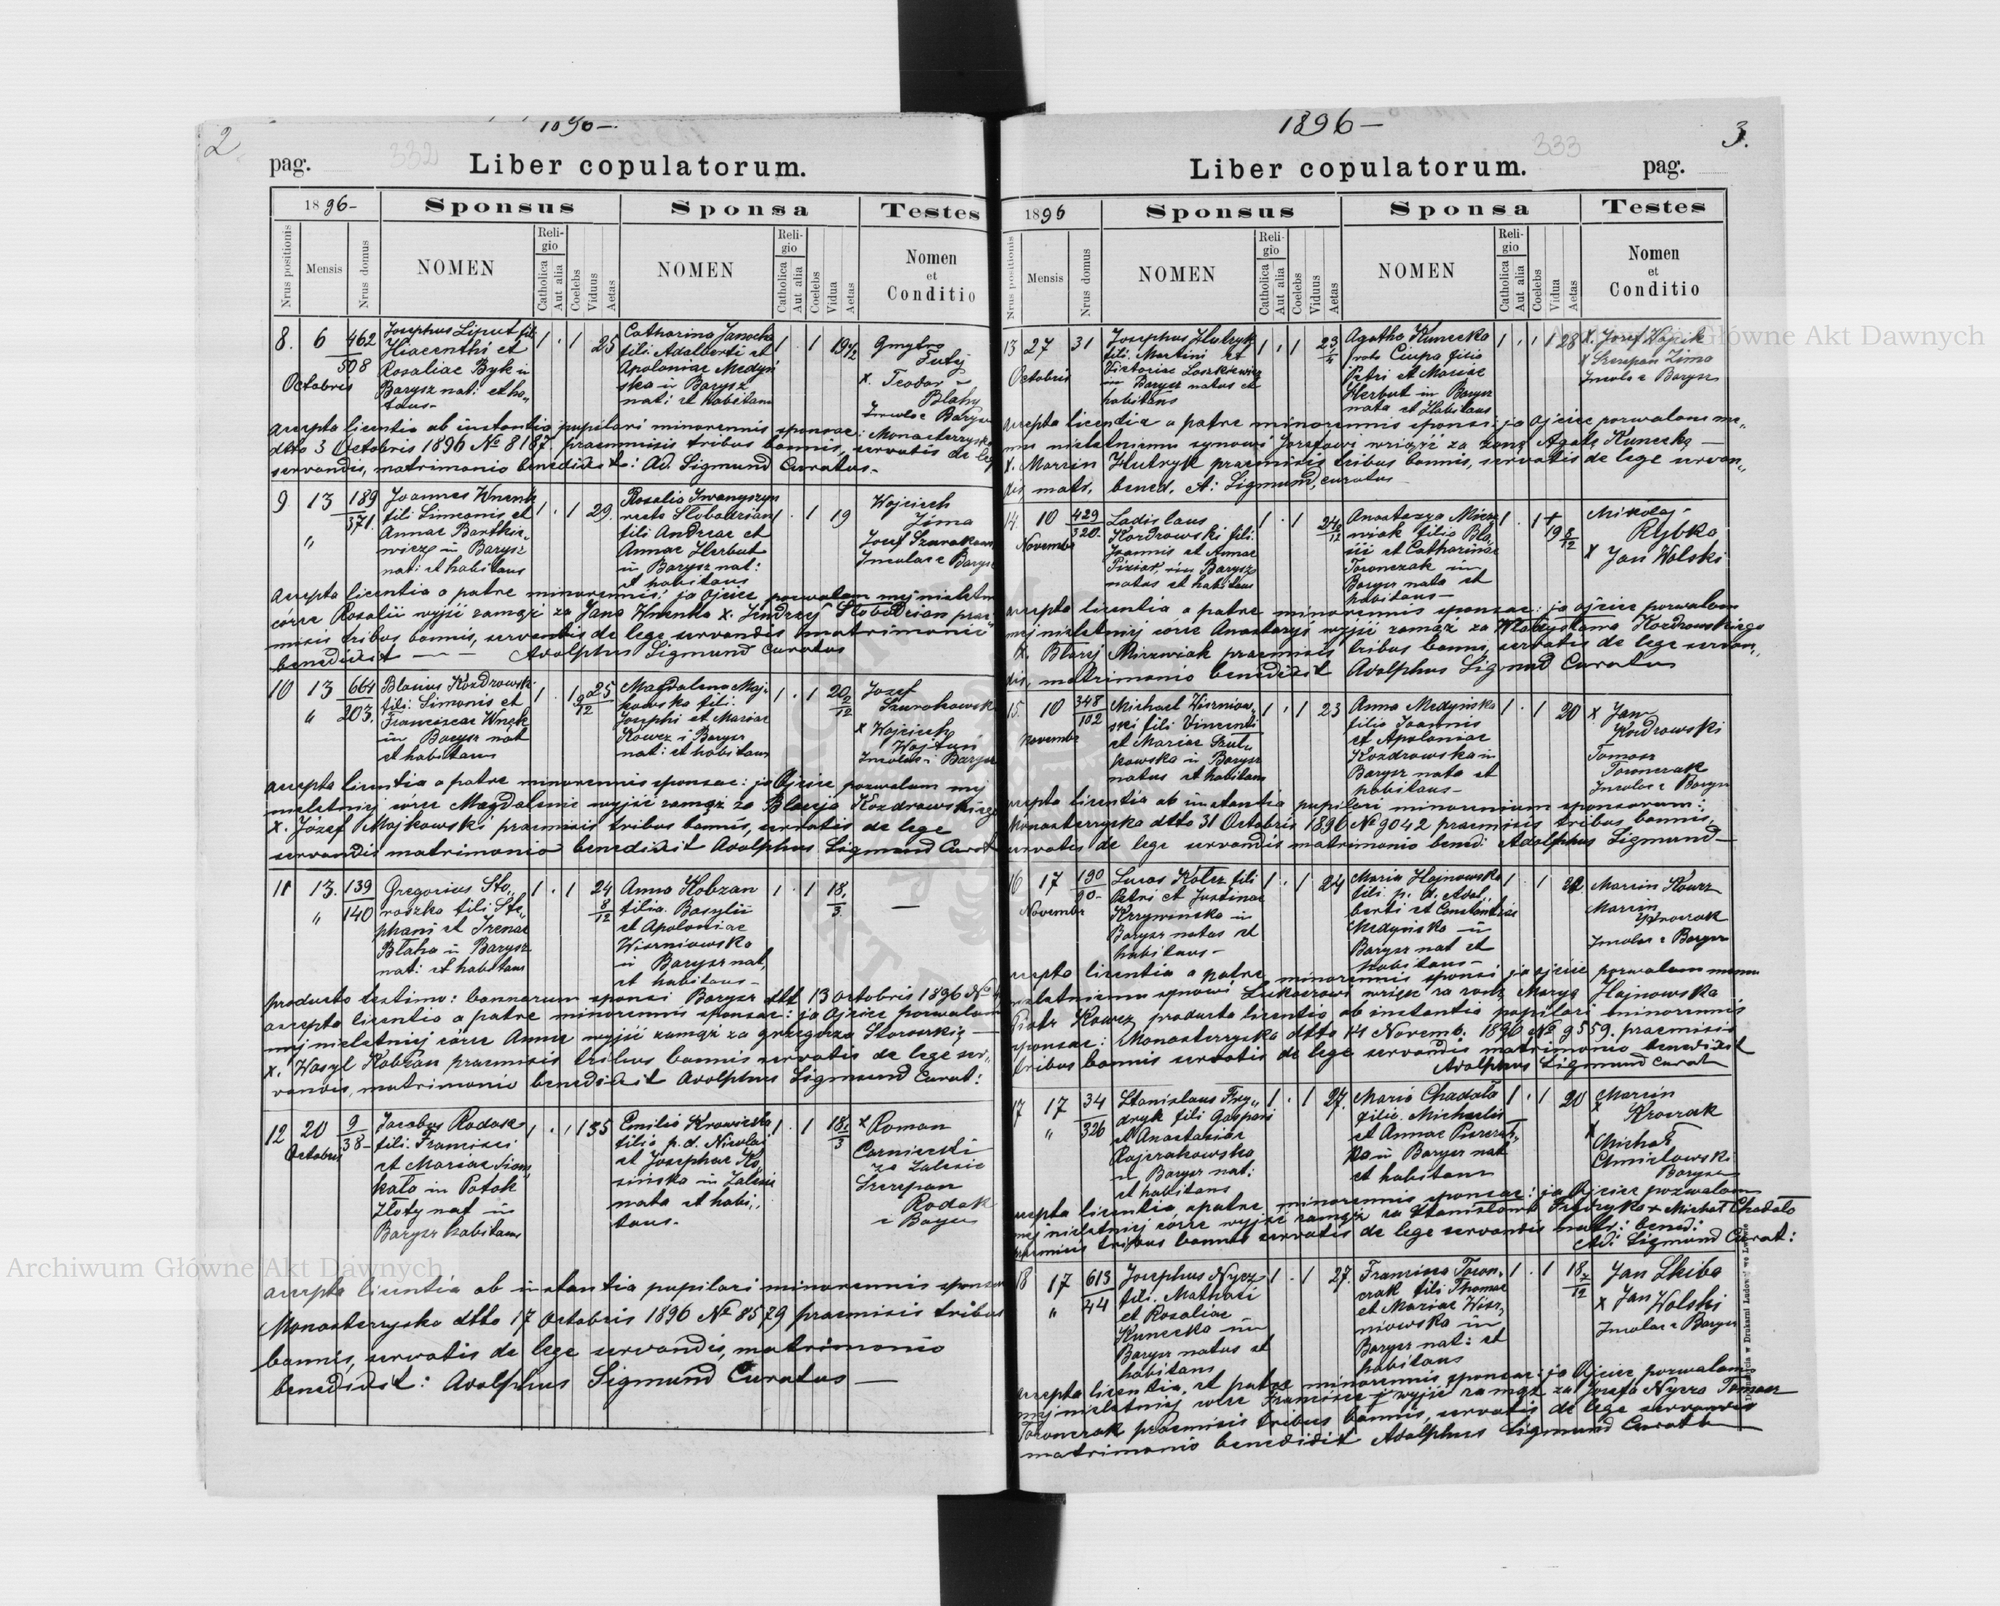 2
1896 —
pag.
332
Liber copulatorum.
1896 -
Sponsus
Sponsa
Testes
Nrus positionis
Mensis
Nrus domus
NOMEN
Religio
Catholica
Aut alia
Coelebs
Viduus
Aetas
NOMEN
Religio
Catholica
Aut alia
Coelebs
Vidua
Aetas
Nomen
et
Conditio
8. 6 462/508
Octobris
Josephus Liput fili
Hiacenthi et
Rosaliae Byk in
Barysz nat: et ha-
tans -
1 . 1 25
Catharina
fili Adalberti et
Apoloniae Medyń
ska in Barysz
nat: et habitans
1 . 1 19
x. Teodor
Błahy
Incolae Barysz
accepta licentia ab instantia pupilari minorennis sponsae: Monasterzyska
dtto 3 Octobris 1896 No 8187 praemissis tribus bannis, servatis de lege
servandis, matrimonio benedixit: Ad. Sigmund Curatus -
9 13 189/371.
"
Joannes Wnenk
fili Simeonis et
Annae Bartkie-
wicz in Barysz
nat: et habitans
1 . 1 29.
Rosalia Iwanyszyn
recte Słobodzian
fili Andreae et
Annae Herbut
in Barysz nat:
et habitans
1 . 1 19
Wojciech
Zima
Józef
Incolae Barysz
accepta licentia a patre minorennis: ja Ojciec pozwalam mej nieletn
córce Rosalii wyjść zamąż za Jana Wnenka x. Jendrzej Słobodzian prae-
missis tribus bannis, servatis de lege servandis matrimonio
benedixit — — Adolphus Sigmund Curatus
10 13 664/203.
"
Blasius Kozdrowski
fili: Simonis et
Franciscae Wnęk
in Barysz nat
et habitans
1 . 1 25 9/12
Magdalena Maj-
kowska fili:
Josephi et Mariae
Kowcz i Barysz
nat: et habitans
1 . 1 20 2/12
Józef
x Wojciech
Incolae Barysz
accepta licentia a patre minorennis sponsae: ja Ojciec pozwalam mej
nieletniej córce Magdalenie wyjść zamąż za Błażeja Kozdrowskiego
x. Józef Majkowski praemissis tribus bannis, servatis de lege
servandis matrimonio benedixit Adolphus Sigmund Curat
11 13. 139/140
"
Gregorius Sto-
roszko fili Ste-
phani et Irenae
Błaha in Barysz
nat: et habitans
1 . 1 24 8/12
Anna Kobzan
filia Basylii
et Apoloniae
Wiszniowska
in Barysz nat,
et habitans -
1 . 1 18 1/3
—
producto testimo: bannorum sponsi Barysz dtt 13 octobris 1896 No
accepta licentia a patre minorennis sponsae: ja Ojciec pozwalam
mej nieletniej córce Annie wyjść zamąż za Grzegorza
x. Wasyl Kobzan praemissis tribus bannis servatis de lege ser-
vandis, matrimonio benedixit Adolphus Sigmund Curat:
12 20 9/38-
Octobris
Jacobus Rodak
fili: Francisci
et Mariae
in Potok
Złoty nat in
Barysz habitans
1 . 1 35
Emilia Krowicka
filia p.d. Nicolai
et Josephae Ko
sińska in Zalesie
nata et habi-
tans -
1 . 1 18 1/3
x Roman
Czarniecki
ze Zalesia
Szczepan
Rodak
z Barysz
accepta licentia ab instantia pupilari minorennis sponsae
Monasterzyska dtto 17 octobris 1896 No 8579 praemissis tribus
bannis, servatis de lege servandis, matrimonio
benedixit: Adolphus Sigmund Curatus —
1896 —
3.
333
Liber copulatorum.
pag.
1896
Sponsus
Sponsa
Testes
Nrus positionis
Mensis
Nrus domus
NOMEN
Religio
Catholica
Aut alia
Coelebs
Viduus
Aetas
NOMEN
Religio
Catholica
Aut alia
Coelebs
Vidua
Aetas
Nomen
et
Conditio
13 27 31
Octobris
Josephus Hutnyk
fili. Martini et
Victoriae Laszkiewicz
in Barysz natus et
habitans
1 . 1
Agatha Kunecka
voto Czupa filia
Petri et Mariae
Herbut in Barysz
nata et Habitans
1 . 1 1 28
x. Józef Wójcik
x Szczepan Zima
Incolae Barysz
accepta licentia a patre minorennis sponsi: ja Ojciec pozwalam me-
mu nieletniemu synowi Józefowi wziąść za żonę Agatę Kunecką —
x. Marcin Hutnyk praemissis tribus bannis, servatis de lege servan-
dis, matr. bened. A: Sigmund, curatus
14. 10 429/320.
Novembr
Ladislaus
Kozdrowski fili:
Joannis et Annae
in Barysz
natus et habitans
1 . 1
Anastazya Mierz
wiak filia Bla-
sii et Catharinae
Toronczak in
Barysz nata et
habitans -
1 . 1 19 8/12
Mikołaj
Rybka
x Jan Wolski
accepta licentia a patre minorennis sponsae: ja ojciec pozwalam
mej nieletniej córce Anastazyi wyjść zamąż za Władysława Kozdrowskiego
x. Błażej Mierzwiak praemissis tribus bannis, servatis de lege servan-
dis, matrimonio benedixit Adolphus Sigmund Curatus
15. 10 348/102
novembr
Michael Wiszniow-
ski fili Vincenti
et Mariae
in Barysz
natus et habitans
1 . 1 23
Anna Medyńska
filia Joannis
et Apoloniae
Kozdrowska in
Barysz nata et
habitans -
1 . 1 20
x Jan
Kozdrowski
Tomasz
Toronczak
Incolae Barysz
accepta licentia ab instantia pupilari minorennium sponsorum:
Monasterzyska dtto 31 Octobris 1896 No 9042 praemissis tribus bannis,
servatis de lege servandis matrimonio bened: Adolphus Sigmund —
16 17 190/90-
Novembr
Lucas Kotcz fili
Petri et Justinae
Krzywińska in
Barysz natus et
habitans -
1 . 1 24
Maria Hajnowska
fili. p. d. Adal-
berti et Constantiae
Medyńska in
Barysz nat et
habitans -
1 . 1 22
Marcin Kowcz
Marcin
Incolae Barysz
accepta licentia a patre minorennis sponsi ja ojciec pozwalam memu
nieletniemu synowi Łukaszowi wziąść za żonę Maryą Hajnowską
Piotr Kowcz, producta licentia ab instantia pupilari minorennis
sponsae: Monasterzyska dtto 14 Novemb. 1896 No 9559. praemissis
tribus bannis servatis de lege servandis matrimonio benedixit
Adolphus Sigmund Curat
17 17 34/326
"
Stanislaus Fry-
dryk fili Gaspari
et Anastasiae
Rajzakowska
in Barysz nat:
et habitans
1 . 1 27.
Maria Chadała
filia Michaelis
et Annae
in Barysz nat
et habitans
1 . 1 20
Marcin
x Kroczak
x Michał
Chmielowski
Barysz
accepta licentia, a patre minorennis sponsae: ja Ojciec pozwalam
mej nieletniej córce wyjść zamąż za Stanisława Frydryka x Michał Chadała
praemissis tribus bannis servatis de lege servandis matr: bened:
Ad: Sigmund Curat:
18 17 613/44
"
Josephus Nycz
fili. Mathaei
et Rosaliae
Kunecka in
Barysz natus et
habitans
1 . 1 27.
Francisca Toron-
czak fili Thomae
et Mariae Wisz-
niowska in
Barysz nat: et
habitans
1 . 1 18 7/12
Jan Skiba
x Jan Wolski
Incolae Barysz
accepta licentia, a patre minorennis sponsae: ja Ojciec pozwalam
mej nieletniej córce Franciszce wyjść zamąż za Józefa Nycza Tomasz
Toronczak praemissis tribus bannis, servatis de lege servandis
matrimonio benedixit Adolphus Sigmund Curatus
w Drukarni Ludowej we Lwowie
Archiwum Główne Akt Dawnych
Archiwum Główne Akt Dawnych